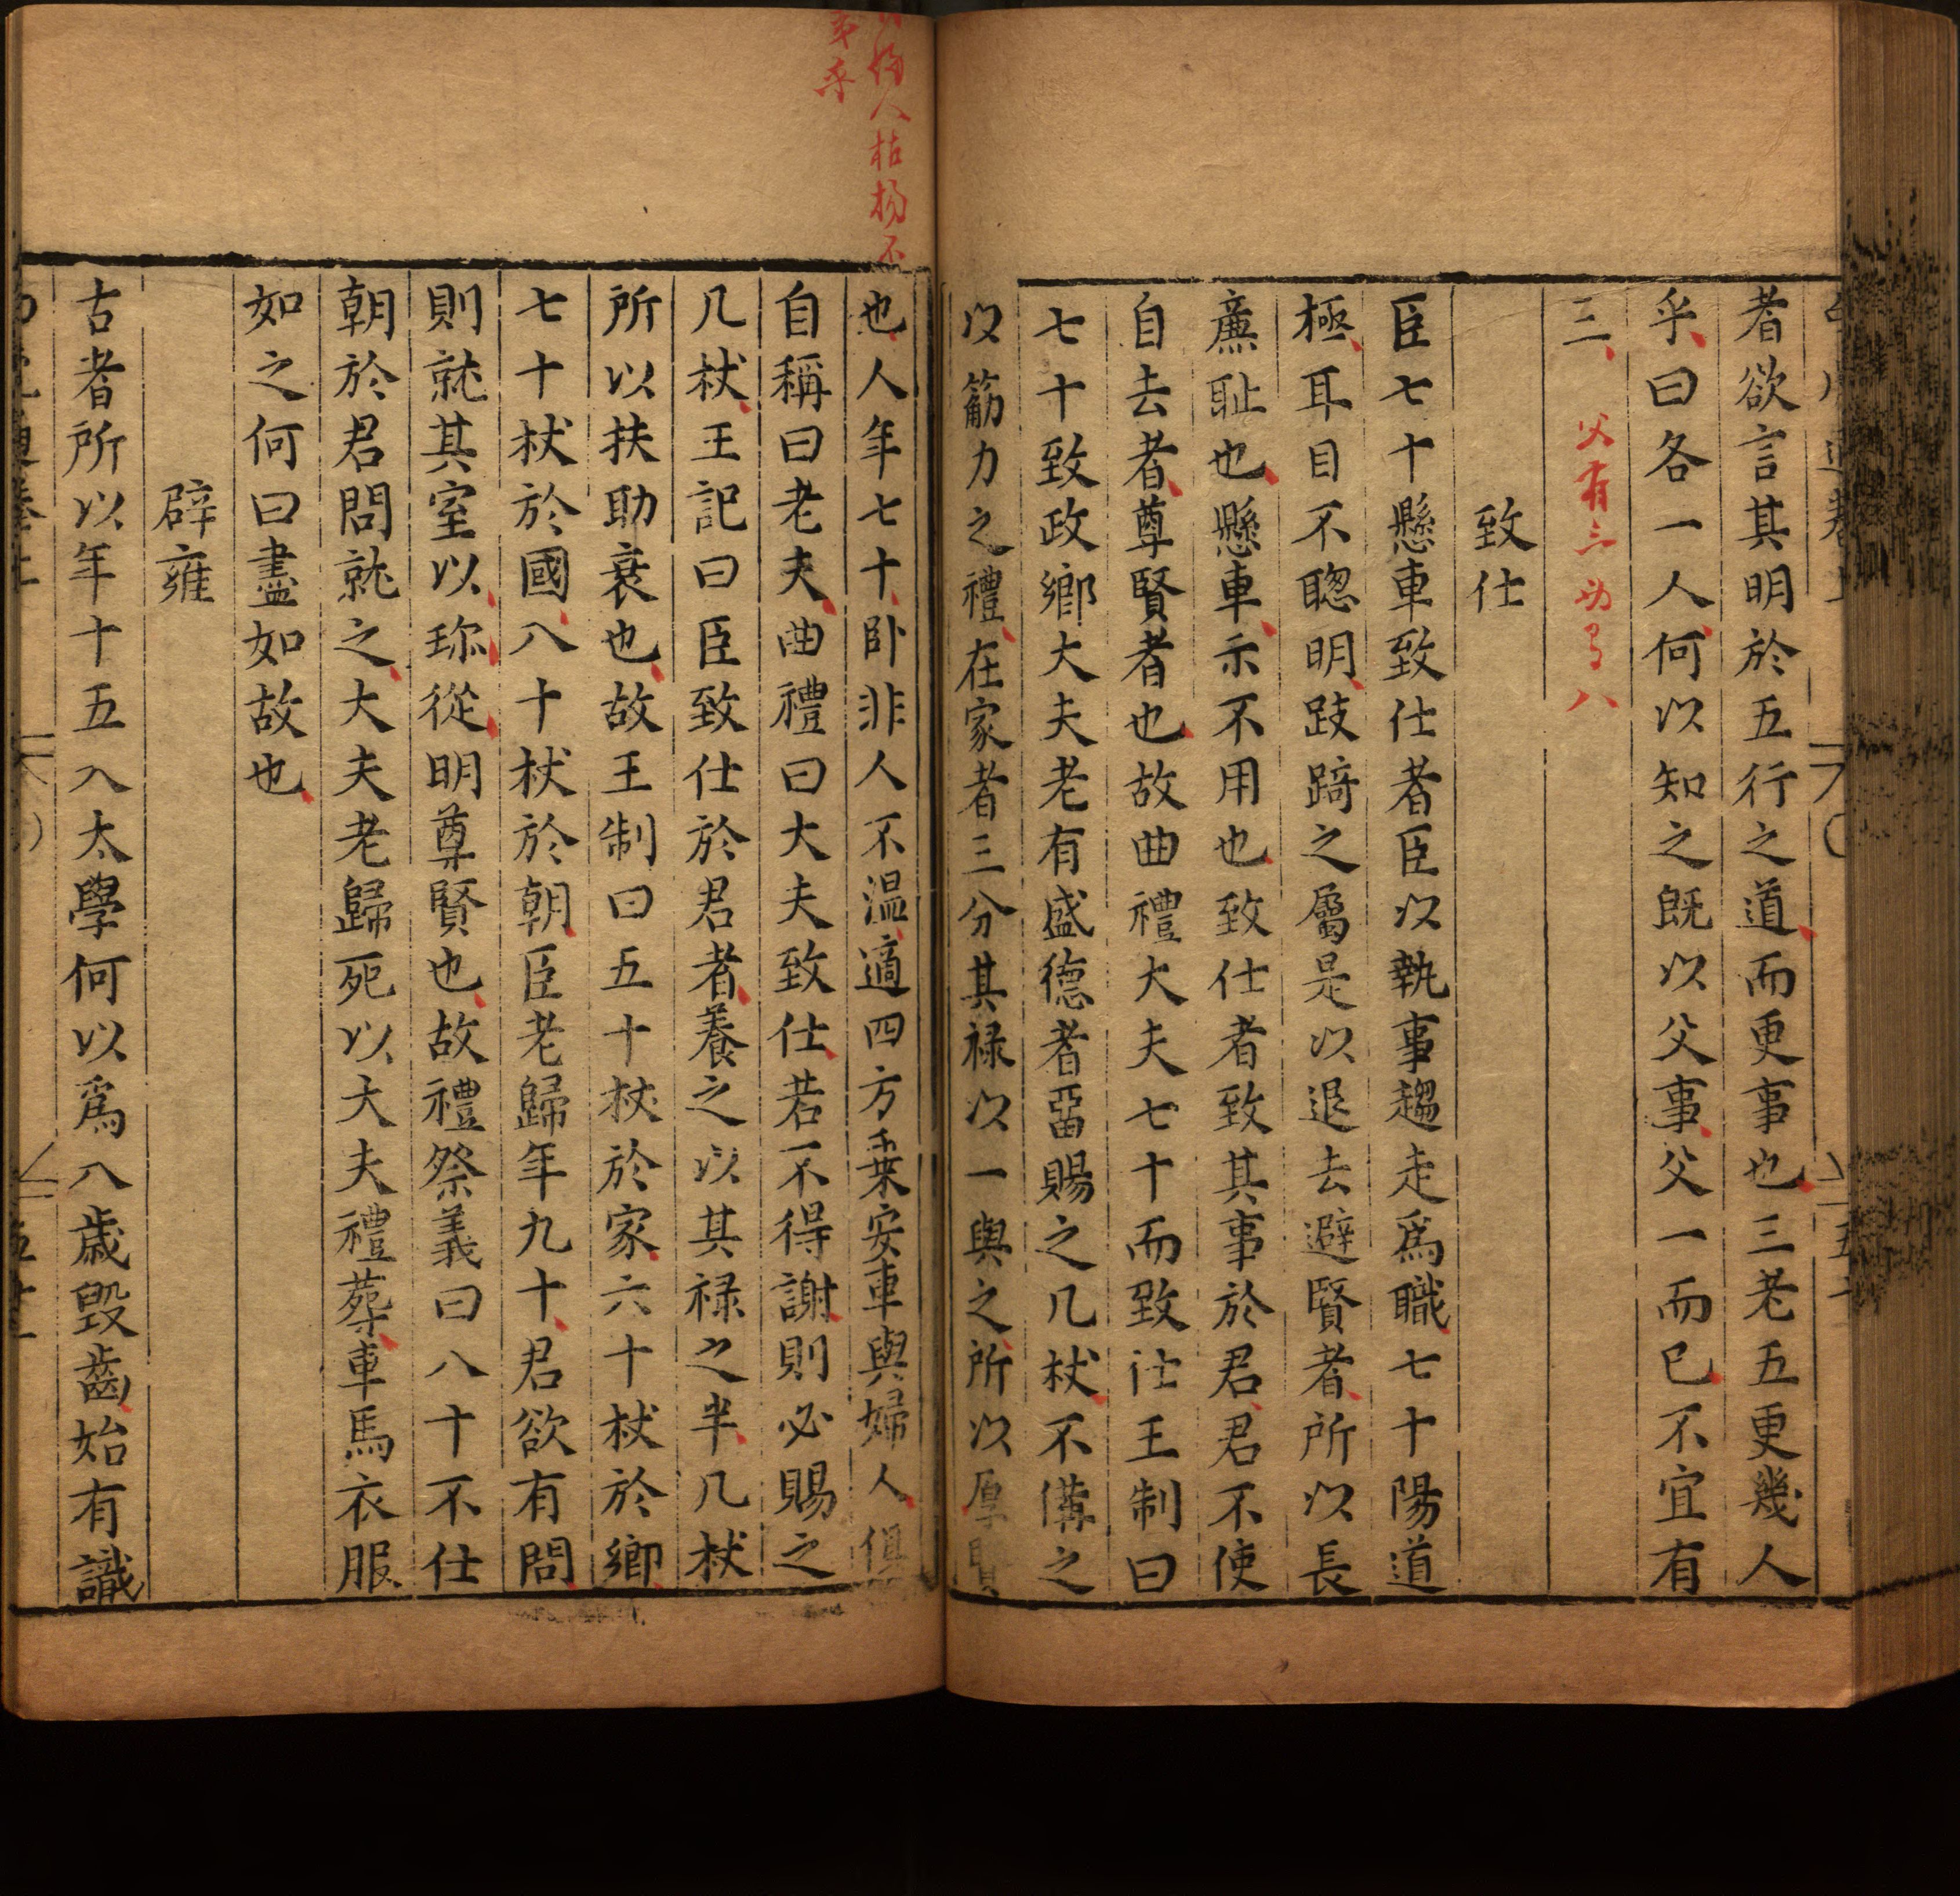 者欲言其明於五行之道而更事也三老五更幾人
乎曰各一人何以知之既以父事父一而已不宜有
三
父有三
八
致仕
臣七十懸車致仕者臣以執事趨走爲職七十陽道
極耳目不聦明跂踦之屬是以退去避賢者所以長
廉耻也懸車示不用也致仕者致其事於君君不使
自去者尊賢者也故曲禮大夫七十而致仕王制曰
七十致政鄉大夫老有盛德者畱賜之几杖不備之
以筋力之禮在家者三分其禄以一與之所以厚賢
婦人枯楊不
也人年七十卧非人不温適四方乗安車與婦人俱
自稱曰老夫曲禮曰大夫致仕若不得謝則必賜之
几杖王記曰臣致仕於君者養之以其禄之半几杖
所以扶助衰也故王制曰五十杖於家六十杖於鄉
七十杖於國八十杖於朝臣老歸年九十君欲有問
則就其室以珎從明尊賢也故禮祭義曰八十不仕
朝於君問就之大夫老歸死以大夫禮葬車馬衣服
如之何曰盡如故也
辟雍
古者所以年十五入太學何以爲八歳毁齒始有識